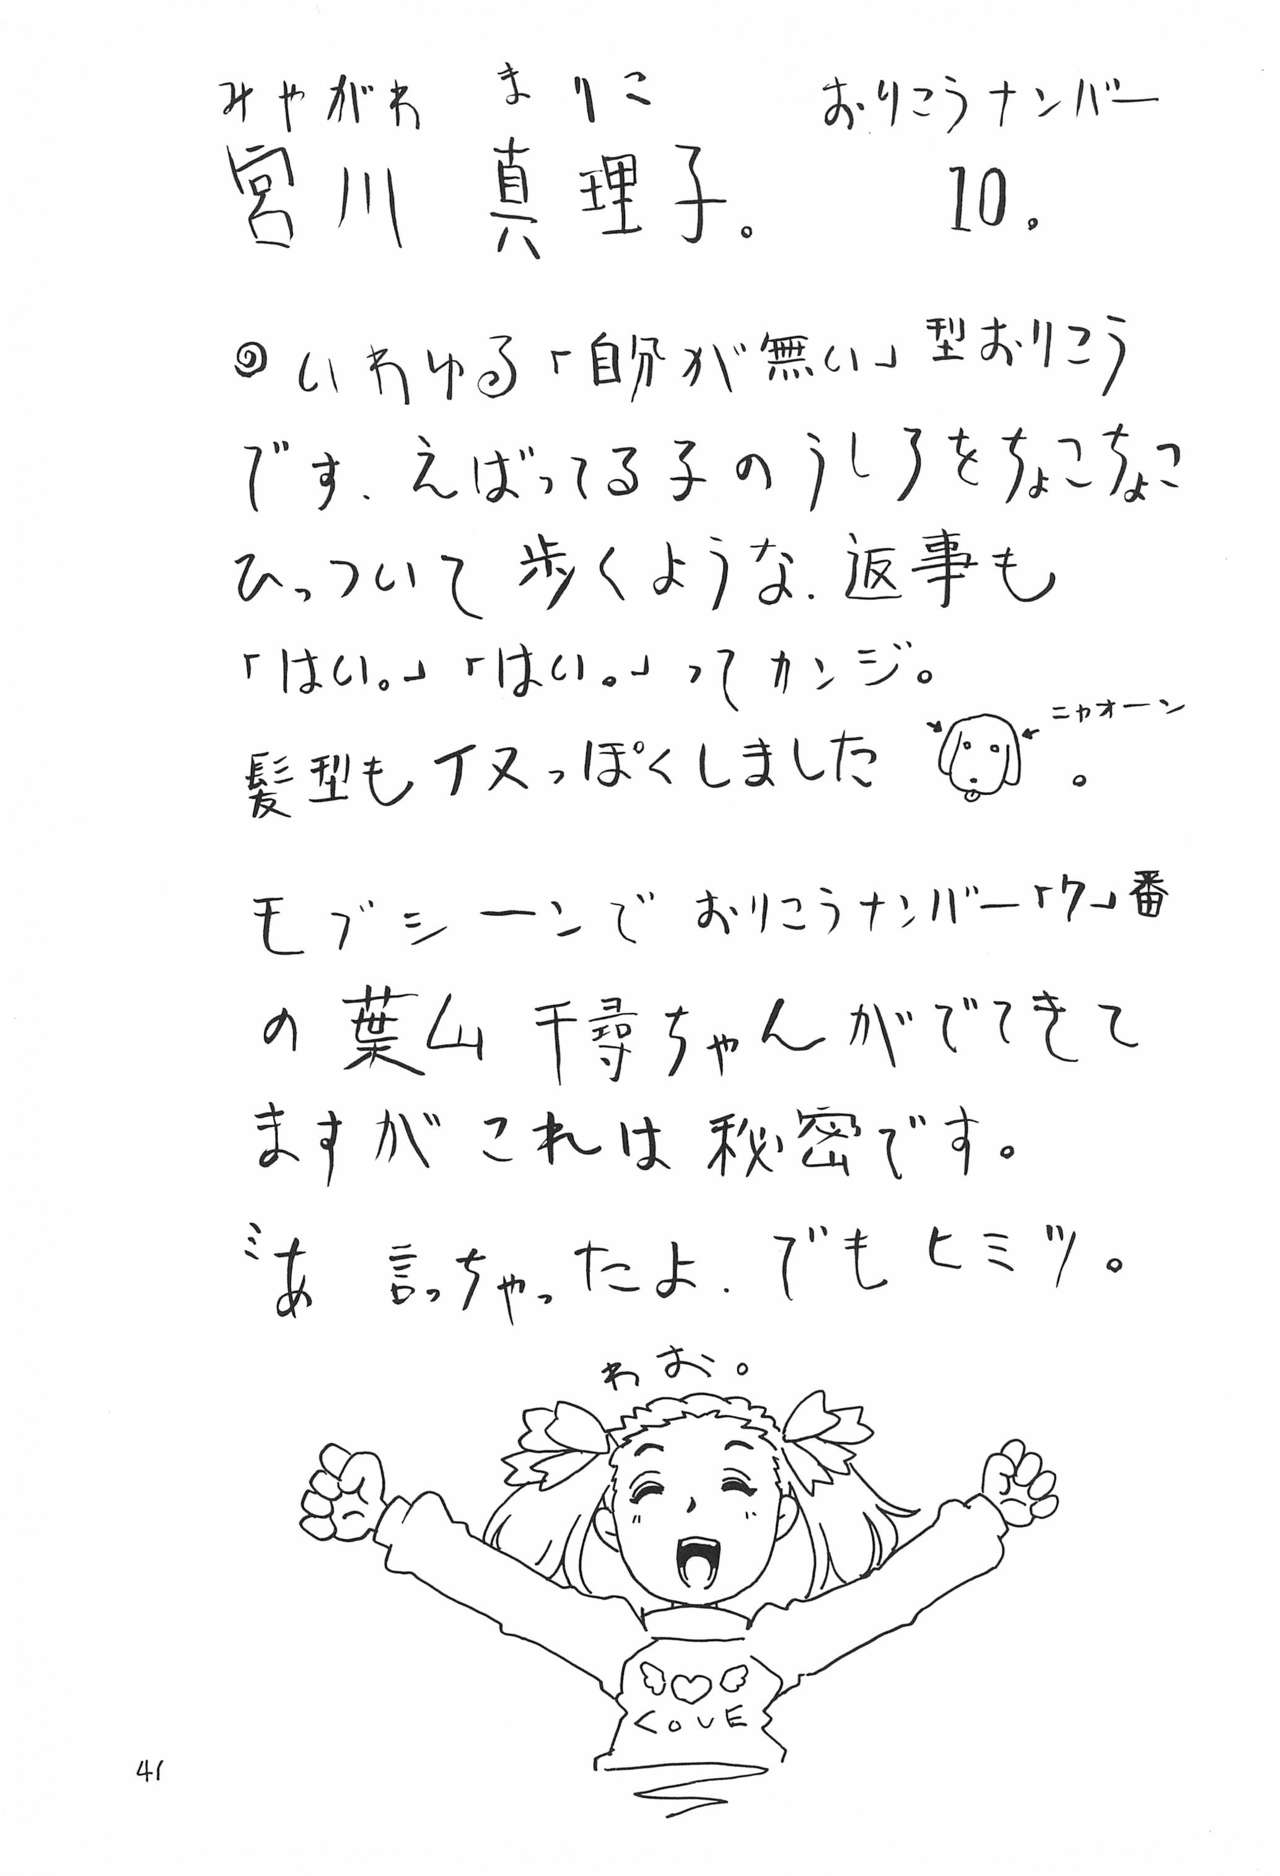 みやがわ まりこ おりこうナンバー
宮川 真理子。 10.
◎いわゆる「自分が無い」型おりこう
です. えばってる子のうしろをちょこちょこ
ひっついて歩くような. 返事も
「はい。」「はい。」ってカンジ。
ニャオーン
髪型もイヌっぽくしました 。
モブシーンでおりこうナンバー「7」番
の葉山 千尋ちゃんがでてきて
ますがこれは秘密です。
あ 言っちゃったよ. でもヒミツ。
わお。
LOVE
41